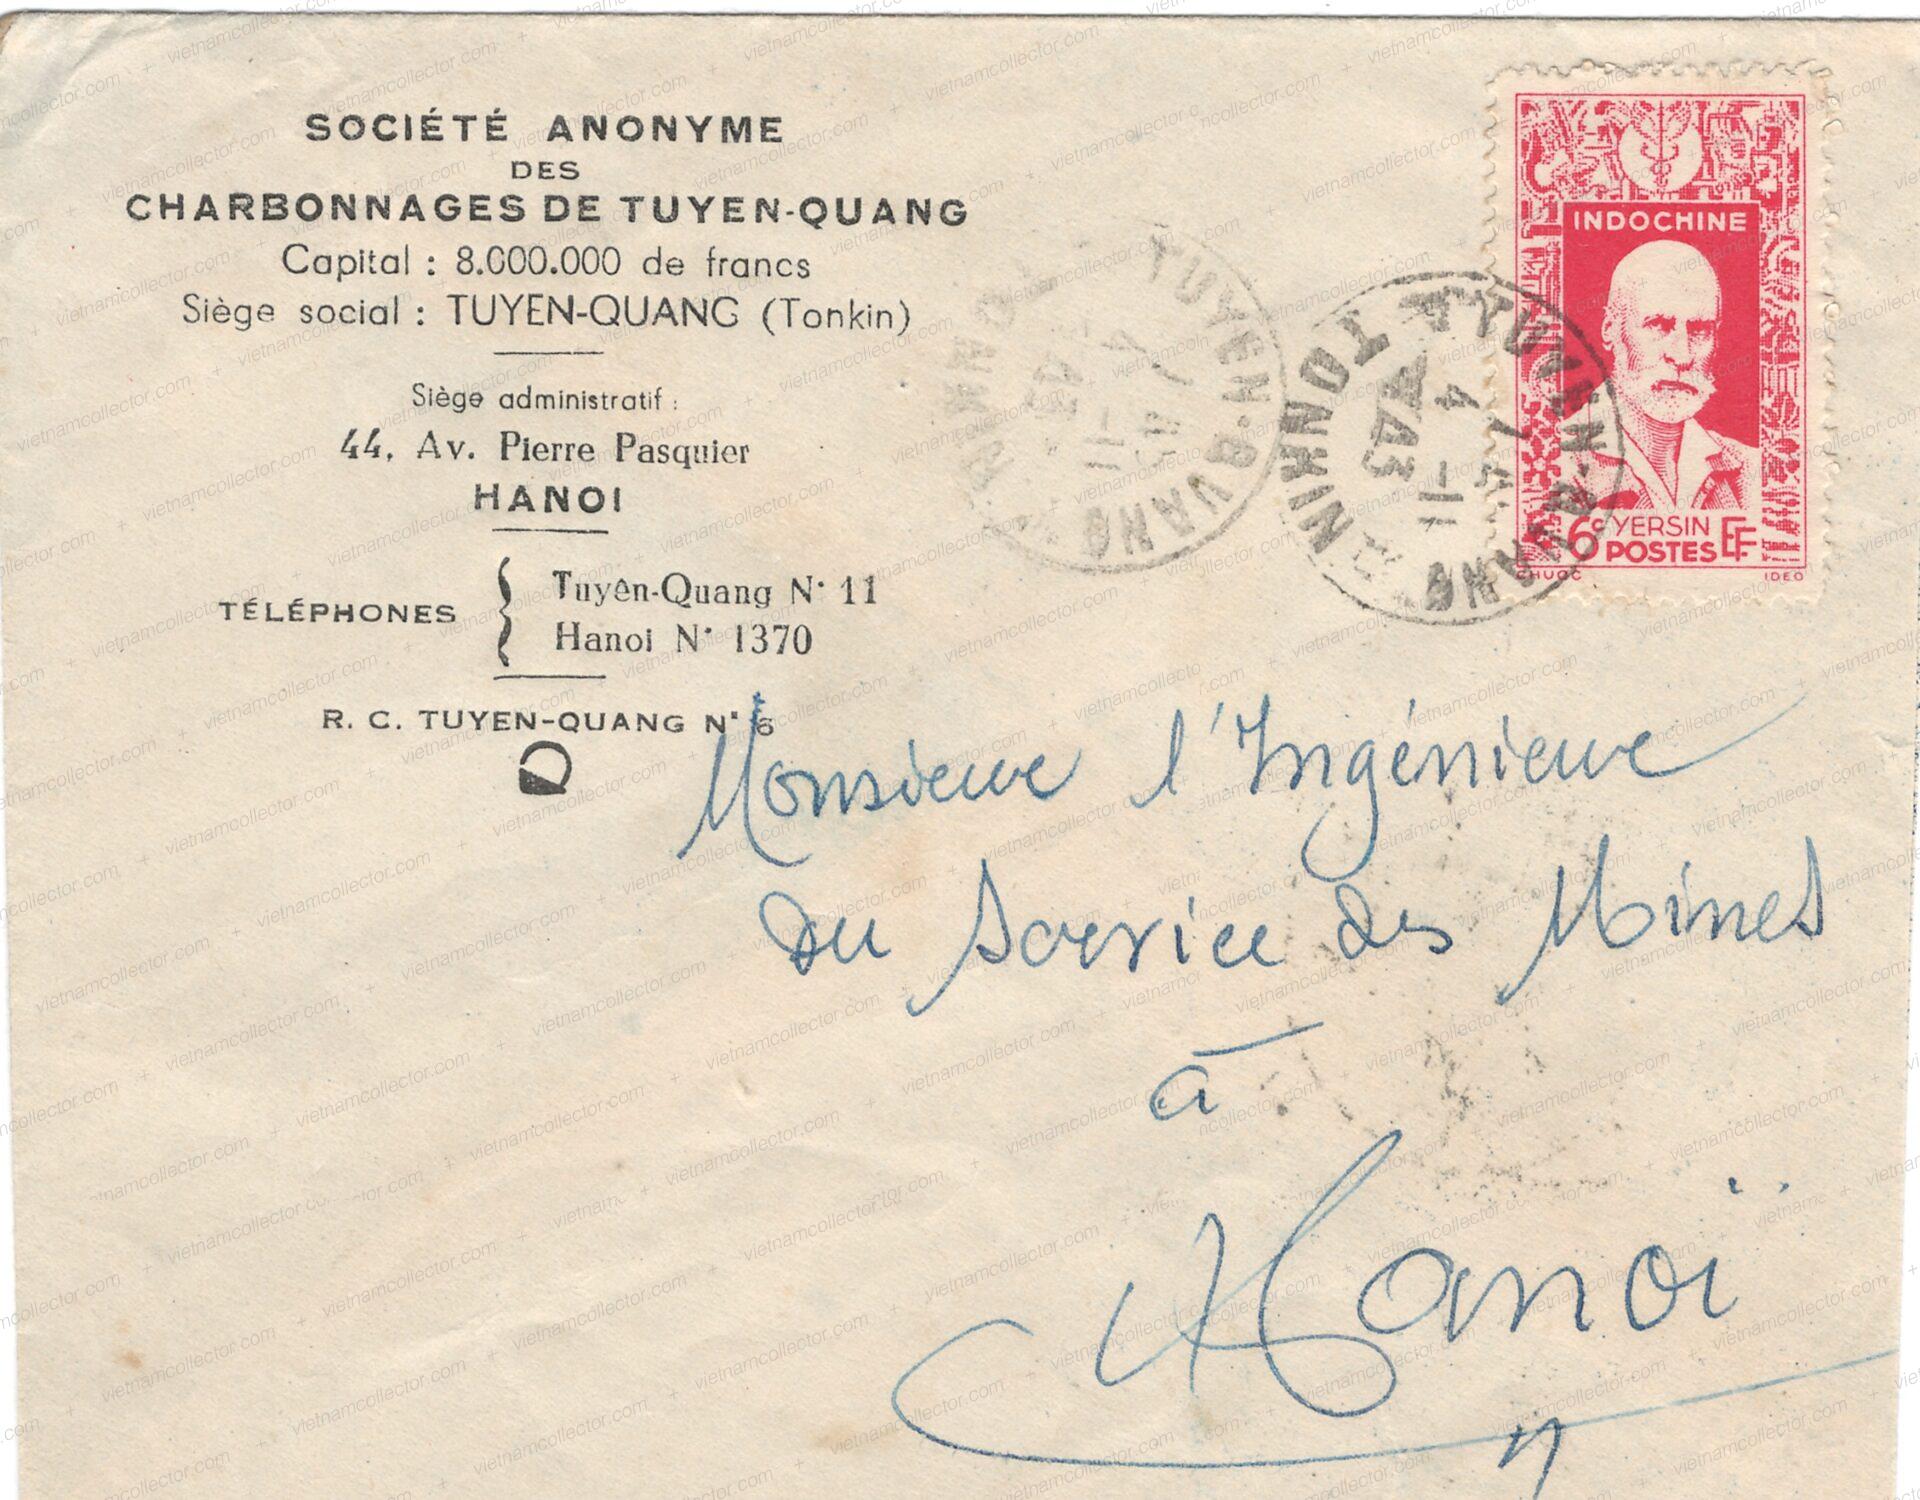 SOCIÉTÉ ANONYME
DES
CHARBONNAGES DE TUYEN-QUANG
Capital : 8.000.000 de francs
Siège social : TUYEN-QUANG (Tonkin)
Siège administratif :
44, Av. Pierre Pasquier
HANOI
TÉLÉPHONES
Tuyên-Quang N° 11
Hanoi N° 1370
R. C. TUYEN-QUANG N° 6
D
INDOCHINE
6c YERSIN
POSTES EF
CHUOC IDEO
TUYEN-QUANG
TONKIN
TUYEN-QUANG
TONKIN
Monsieur l'Ingénieur
du Service des Mines
à
Hanoï
vietnamcollector.com